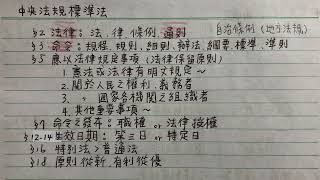 中央法規標準法
§2 法律：法、律、條例、通則 自治條例(地方法規)
§3 命令：規程、規則、細則、辦法、綱要、標準、準則
§5 應以法律規定事項(法律保留原則)
1. 憲法或法律有明文規定~
2. 關於人民之權利、義務者
3. 〃 國家各機關之組織者
4. 其他重要事項~
§7 命令之發布：職權 or 法律授權
§12-14 生效日期：第三日 or 特定日
§16 特別法>普通法
§18 原則從新，有利從優